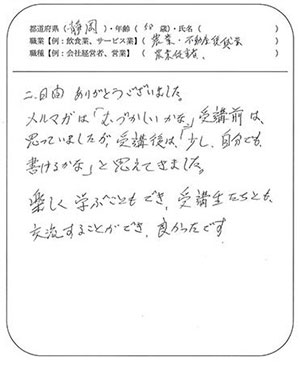 都道府県（静岡）・年齢（58歳）・氏名（　　　　　）
職業【例：飲食業、サービス業】（農業・不動産賃貸業）
職種【例：会社経営者、営業】（農業従事者）
二日間 ありがとうございました。
メルマガは「むづかしいかな」受講前は、
思っていましたが、受講後は、「少し、自分でも、
書けるかな」と思えてきました。
楽しく学ぶこともでき、受講生たちとも、
交流することができ、良かったです